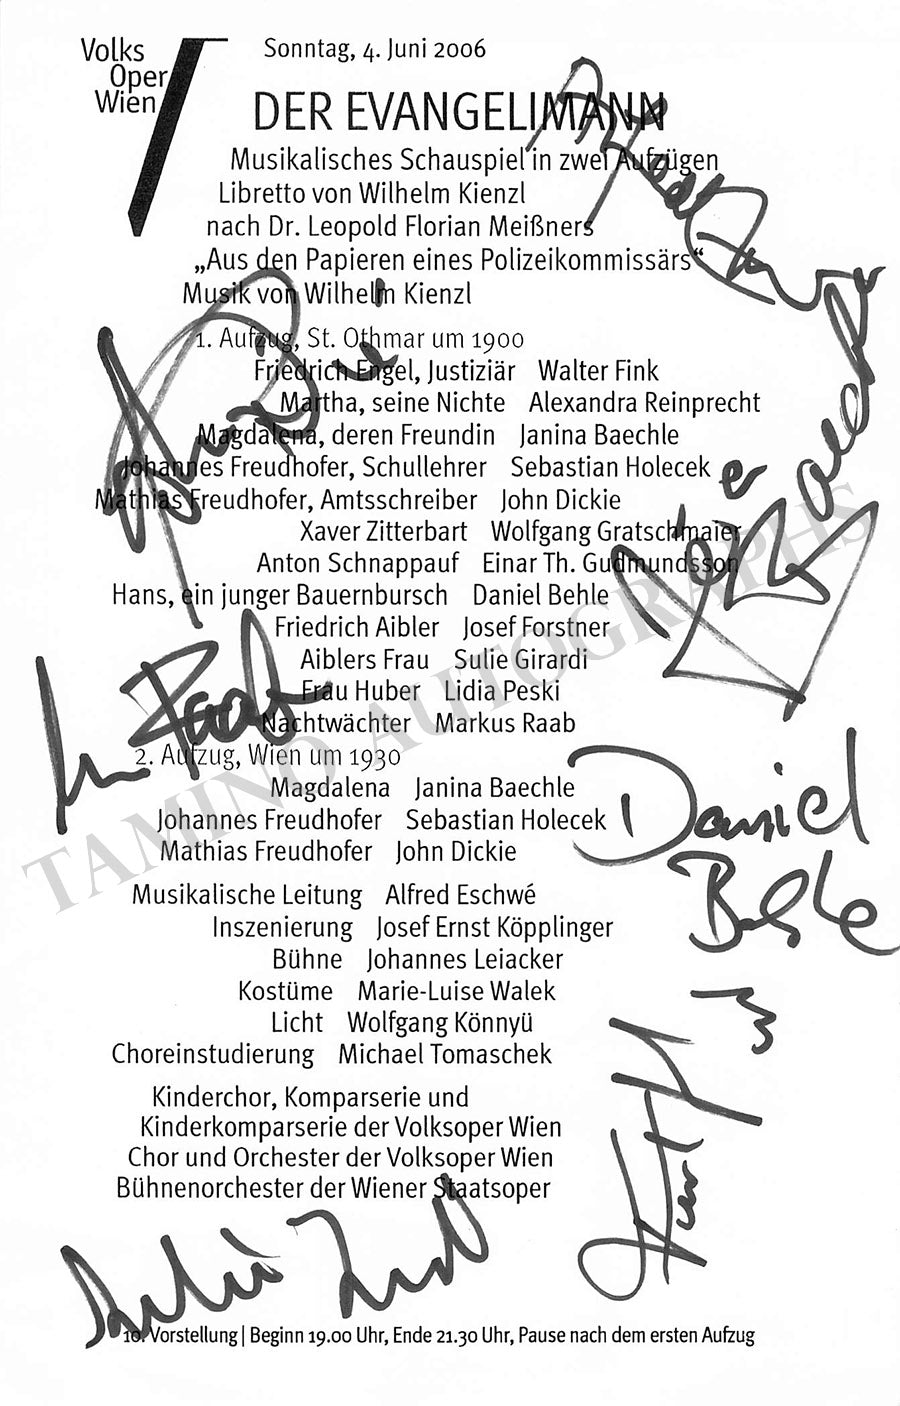 Volks
Oper
Wien
Sonntag, 4. Juni 2006
DER EVANGELIMANN
Musikalisches Schauspiel in zwei Aufzügen
Libretto von Wilhelm Kienzl
nach Dr. Leopold Florian Meißners
„Aus den Papieren eines Polizeikommissärs“
Musik von Wilhelm Kienzl
1. Aufzug, St. Othmar um 1900
Friedrich Engel, Justiziär Walter Fink
Martha, seine Nichte Alexandra Reinprecht
Magdalena, deren Freundin Janina Baechle
Johannes Freudhofer, Schullehrer Sebastian Holecek
Mathias Freudhofer, Amtsschreiber John Dickie
Xaver Zitterbart Wolfgang Gratschmaier
Anton Schnappauf Einar Th. Gudmundsson
Hans, ein junger Bauernbursch Daniel Behle
Friedrich Aibler Josef Forstner
Aiblers Frau Sulie Girardi
Frau Huber Lidia Peski
Nachtwächter Markus Raab
2. Aufzug, Wien um 1930
Magdalena Janina Baechle
Johannes Freudhofer Sebastian Holecek
Mathias Freudhofer John Dickie
Daniel
Behle
Musikalische Leitung Alfred Eschwé
Inszenierung Josef Ernst Köpplinger
Bühne Johannes Leiacker
Kostüme Marie-Luise Walek
Licht Wolfgang Könnyü
Choreinstudierung Michael Tomaschek
Kinderchor, Komparserie und
Kinderkomparserie der Volksoper Wien
Chor und Orchester der Volksoper Wien
Bühnenorchester der Wiener Staatsoper
10. Vorstellung | Beginn 19.00 Uhr, Ende 21.30 Uhr, Pause nach dem ersten Aufzug
TAMINO AUTOGRAPHS